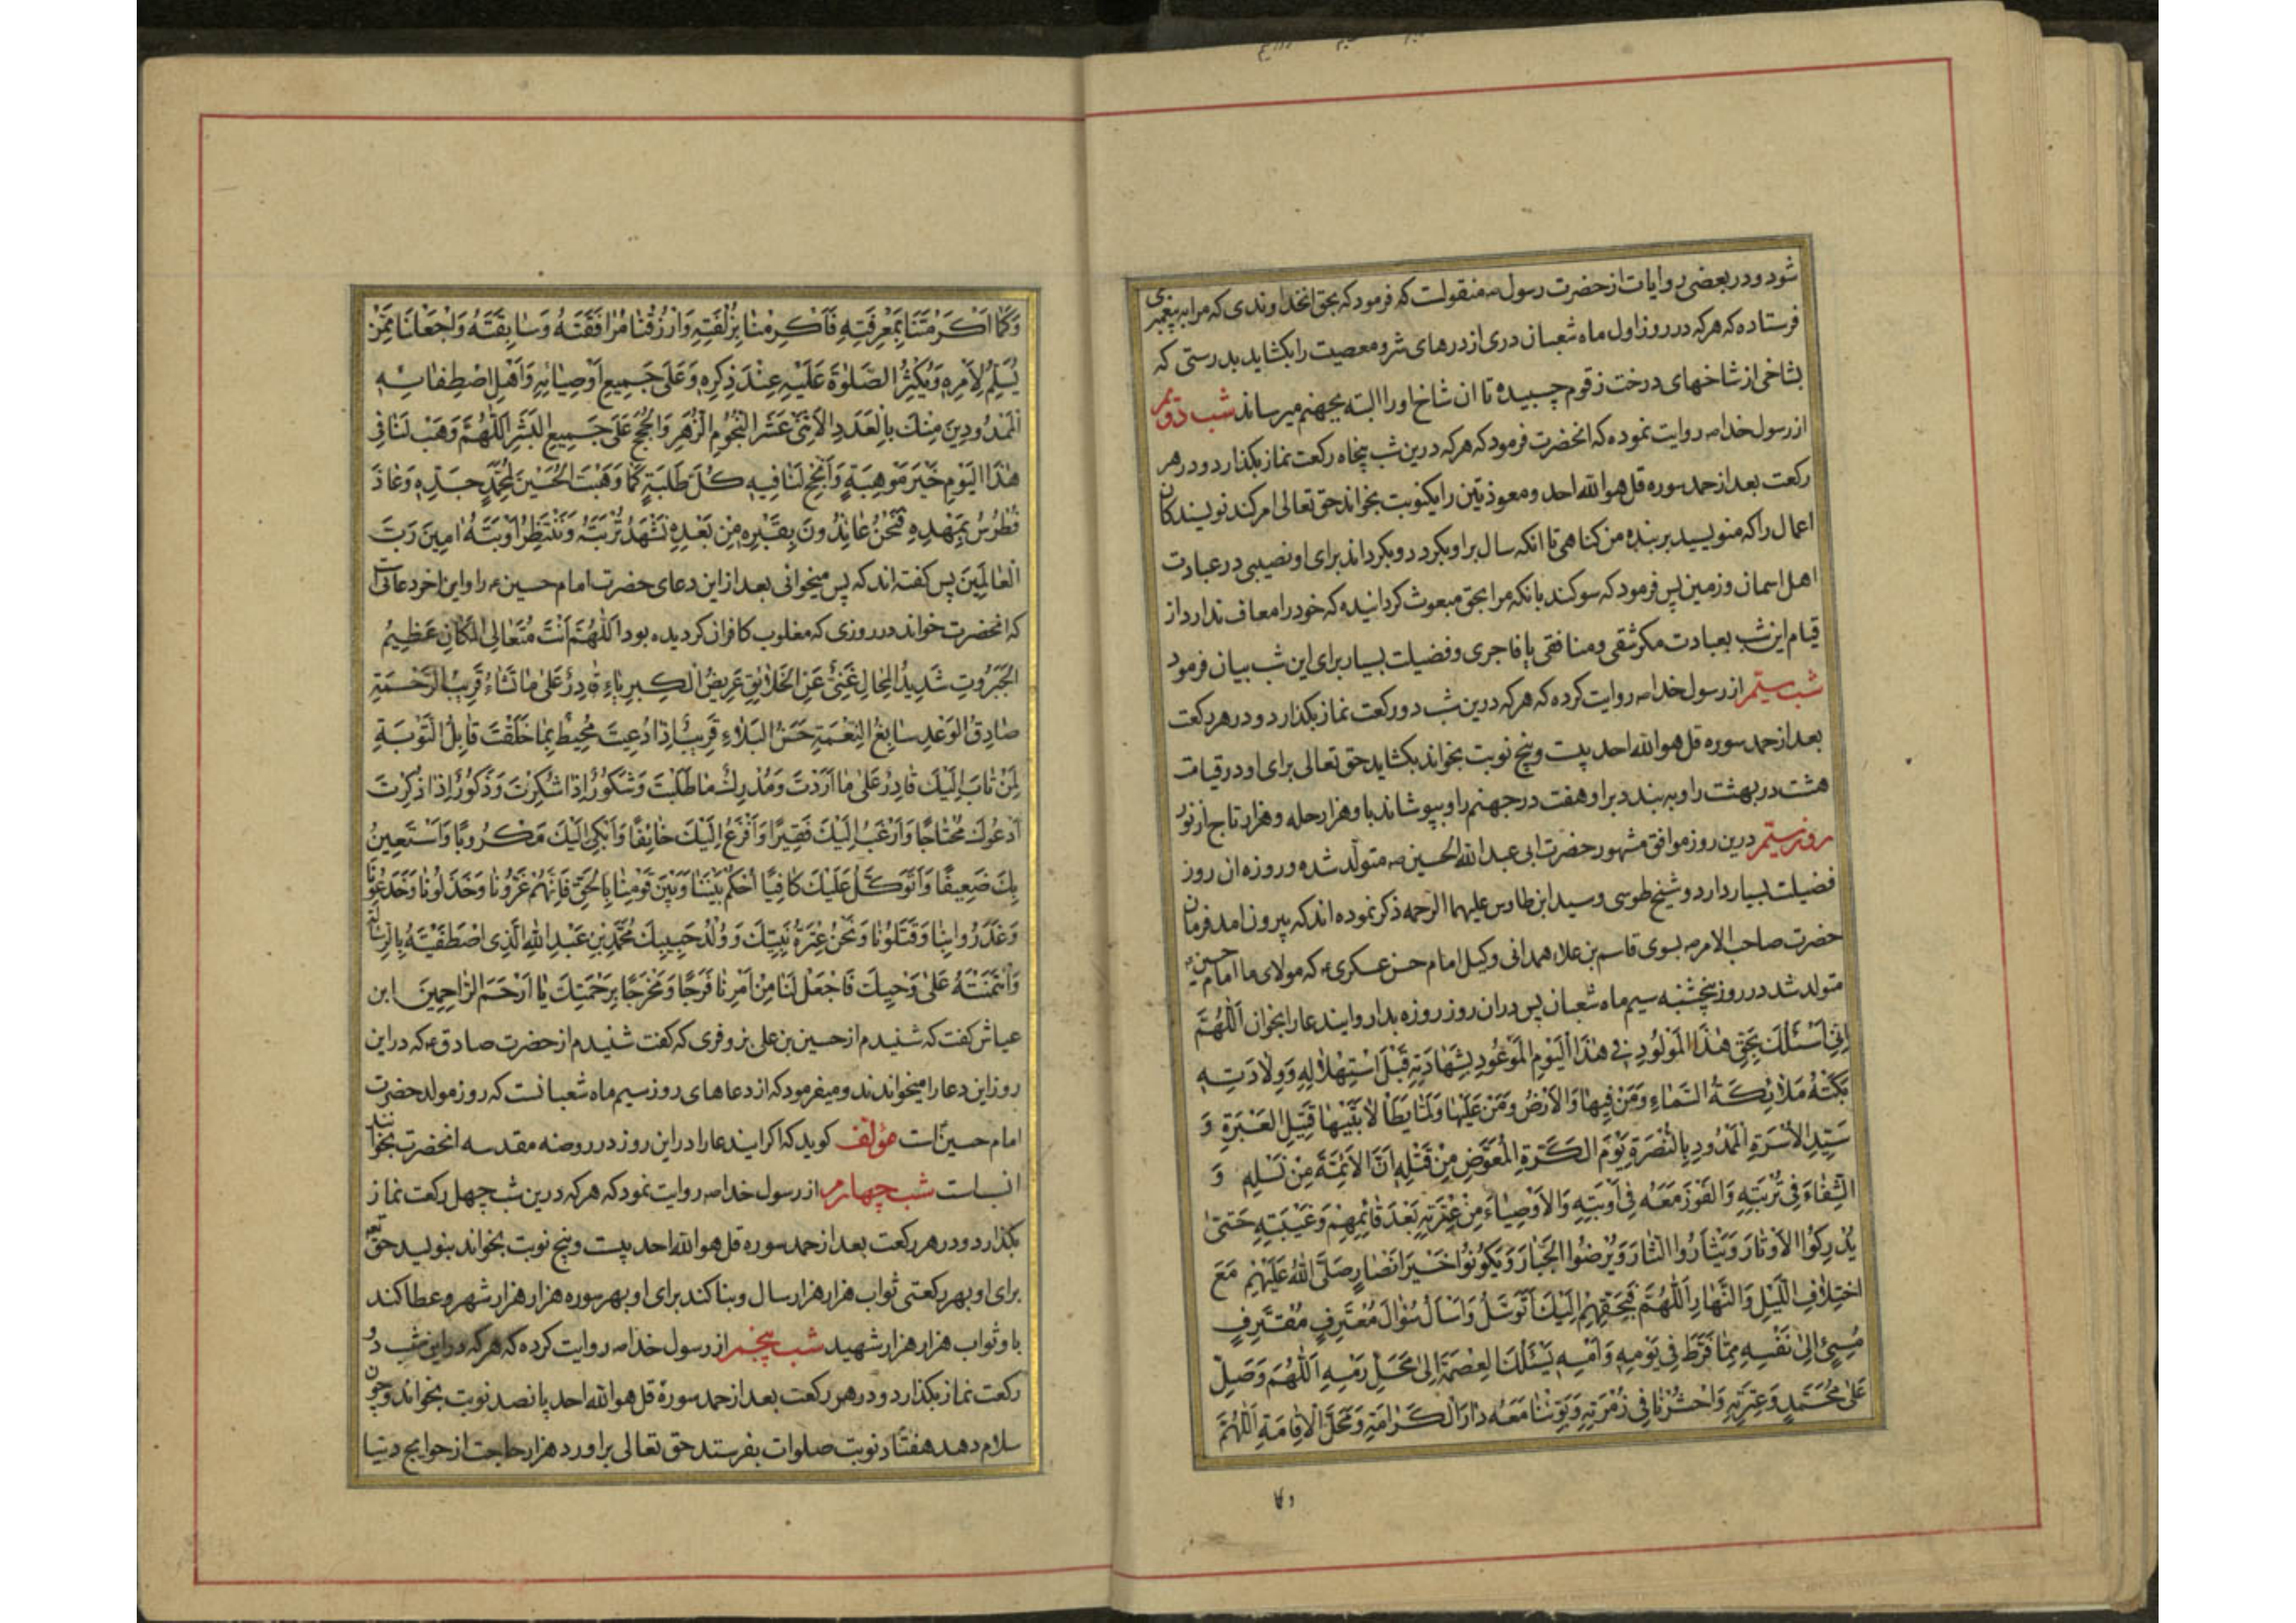 شود و در بعضی روایات از حضرت رسول ص منقولست که فرمود که بحق انخداوندی که مرا به پیغمبری
فرستاده که هرکه در روز اول ماه شعبان دری از درهای شر و معصیت را بکشاید بدرستی که
بشاخی از شاخهای درخت زقوم چسبیده تا ان شاخ او را البته بجهنم میرساند شب دویم
از رسول خدا ص روایت نموده که انحضرت فرمود که هرکه درین شب پنجاه رکعت نماز بکذارد و در هر
رکعت بعد از حمد سوره قل هو الله احد و معوذتین را یکنوبت بخواند حق تعالی امر کند نویسندکان
اعمال را که منویسید بر بنده من کناهی تا انکه سال بر او بکردد و بکرداند برای او نصیبی در عبادت
اهل اسمان و زمین پس فرمود که سوکند بانکه مرا بحق مبعوث کردانیده که خود را معاف ندارد از
قیام این شب بعبادت مکر شقی و منافقی یا فاجری و فضیلت بسیار برای این شب بیان فرمود
شب سیّم از رسول خدا ص روایت کرده که هرکه درین شب دو رکعت نماز بکذارد و در هر رکعت
بعد از حمد سوره قل هو الله احد بیست و پنج نوبت بخواند بکشاید حق تعالی برای او در قیامت
هشت در بهشت را و به بندد بر او هفت در جهنم را و بپوشاند باو هزار حله و هزار تاج از نور
روز سیّم درین روز موافق مشهور حضرت ابی عبد الله الحسین ص متولّد شده و روزه ان روز
فضیلت بسیار دارد و شیخ طوسی و سید ابن طاوس علیهما الرحمه ذکر نموده اند که بیرون امد فرمان
حضرت صاحب الامر ص بسوی قاسم بن علاء همدانی وکیل امام حسن عسکری ع که مولای ما امام حسین ع
متولد شد در روز پنجشنبه سیم ماه شعبان پس دران روز روزه بدار و ایندعا را بخوان اَللّٰهُمَّ
اِنّی اَسْئَلُكَ بِحَقِّ هٰذَا الْمَوْلُودِ فی هٰذَا الْیَوْمِ الْمَوْعُودِ بِشَهَادَتِهِ قَبْلَ اسْتِهْلٰالِهِ وَوِلٰادَتِهِ
بَکَتْهُ مَلٰائِکَةُ السَّمٰاءِ وَمَنْ فِیهٰا وَالْاَرْضُ وَمَنْ عَلَیْهٰا وَلَمّٰا یَطَأْ لٰابَتَیْهٰا قَتِیلِ الْعَبْرَةِ وَ
سَیِّدِ الْاُسْرَةِ الْمَمْدُودِ بِالنُّصْرَةِ یَوْمَ الْکَرَّةِ الْمُعَوَّضِ مِنْ قَتْلِهِ اَنَّ الْاَئِمَّةَ مِنْ نَسْلِهِ وَ
الشِّفٰاءَ فِی تُرْبَتِهِ وَالْفَوْزَ مَعَهُ فِی اَوْبَتِهِ وَالْاَوْصِیٰاءَ مِنْ عِتْرَتِهِ بَعْدَ قٰائِمِهِمْ وَغَیْبَتِهِ حَتّٰی
یُدْرِکُوا الْاَوْتٰارَ وَیَثْاَرُوا الثّٰارَ وَیُرْضُوا الْجَبّٰارَ وَیَکُونُوا خَیْرَ اَنْصٰارٍ صَلَّی اللّٰهُ عَلَیْهِمْ مَعَ
اخْتِلٰافِ اللَّیْلِ وَالنَّهٰارِ اَللّٰهُمَّ فَبِحَقِّهِمْ اِلَیْكَ اَتَوَسَّلُ وَاَسْأَلُ سُؤٰالَ مُعْتَرِفٍ مُقْتَرِفٍ
مُسِیئٍ اِلٰی نَفْسِهِ مِمّٰا فَرَّطَ فِی یَوْمِهِ وَاَمْسِهِ یَسْئَلُكَ الْعِصْمَةَ اِلٰی مَحَلِّ رَمْسِهِ اَللّٰهُمَّ وَصَلِّ
عَلٰی مُحَمَّدٍ وَعِتْرَتِهِ وَاحْشُرْنٰا فِی زُمْرَتِهِ وَبَوِّئْنٰا مَعَهُ دٰارَ الْکَرٰامَةِ وَمَحَلَّ الْاِقٰامَةِ اَللّٰهُمَّ
وَکَمٰا اَکْرَمْتَنٰا بِمَعْرِفَتِهِ فَاَکْرِمْنٰا بِزُلْفَتِهِ وَارْزُقْنٰا مُرٰافَقَتَهُ وَسٰابِقَتَهُ وَاجْعَلْنٰا مِمَّنْ
یُسَلِّمُ لِاَمْرِهِ وَیُکْثِرُ الصَّلٰوةَ عَلَیْهِ عِنْدَ ذِکْرِهِ وَعَلٰی جَمِیعِ اَوْصِیٰائِهِ وَاَهْلِ اصْطِفٰائِهِ
الْمَمْدُودِینَ مِنْكَ بِالْعَدَدِ الْاِثْنَیْ عَشَرَ النُّجُومِ الزُّهَرِ وَالْحُجَجِ عَلٰی جَمِیعِ الْبَشَرِ اَللّٰهُمَّ وَهَبْ لَنٰا فِی
هٰذَا الْیَوْمِ خَیْرَ مَوْهِبَةٍ وَاَنْجِحْ لَنٰا فِیهِ کُلَّ طَلِبَةٍ کَمٰا وَهَبْتَ الْحُسَیْنَ لِمُحَمَّدٍ جَدِّهِ وَعٰاذَ
فُطْرُسُ بِمَهْدِهِ فَنَحْنُ عٰائِذُونَ بِقَبْرِهِ مِنْ بَعْدِهِ نَشْهَدُ تُرْبَتَهُ وَنَنْتَظِرُ اَوْبَتَهُ اٰمِینَ رَبَّ
الْعٰالَمِینَ پس کفته اند که پس میخوانی بعد از این دعای حضرت امام حسین ع را و این اخر دعائی است
که انحضرت خواند در روزی که مغلوب کافران کردیده بود اَللّٰهُمَّ اَنْتَ مُتَعٰالِی الْمَکٰانِ عَظِیمُ
الْجَبَرُوتِ شَدِیدُ الْمِحٰالِ غَنِیٌّ عَنِ الْخَلٰایِقِ عَرِیضُ الْکِبْرِیٰاءِ قٰادِرٌ عَلٰی مٰا تَشٰاءُ قَرِیبُ الرَّحْمَةِ
صٰادِقُ الْوَعْدِ سٰابِغُ النِّعْمَةِ حَسَنُ الْبَلٰاءِ قَرِیبٌ اِذٰا دُعِیتَ مُحِیطٌ بِمٰا خَلَقْتَ قٰابِلُ التَّوْبَةِ
لِمَنْ تٰابَ اِلَیْكَ قٰادِرٌ عَلٰی مٰا اَرَدْتَ وَمُدْرِكٌ مٰا طَلَبْتَ وَشَکُورٌ اِذٰا شُکِرْتَ وَذَکُورٌ اِذٰا ذُکِرْتَ
اَدْعُوكَ مُحْتٰاجًا وَاَرْغَبُ اِلَیْكَ فَقِیرًا وَاَفْزَعُ اِلَیْكَ خٰائِفًا وَاَبْکِی اِلَیْكَ مَکْرُوبًا وَاَسْتَعِینُ
بِكَ ضَعِیفًا وَاَتَوَکَّلُ عَلَیْكَ کٰافِیًا اُحْکُمْ بَیْنَنٰا وَبَیْنَ قَوْمِنٰا بِالْحَقِّ فَاِنَّهُمْ غَرُّونٰا وَخَذَلُونٰا وَخَدَعُونٰا
وَغَدَرُوا بِنٰا وَقَتَلُونٰا وَنَحْنُ عِتْرَةُ نَبِیِّكَ وَوُلْدُ حَبِیبِكَ مُحَمَّدِ بْنِ عَبْدِ اللّٰهِ الَّذِی اصْطَفَیْتَهُ بِالرِّسٰالَةِ
وَائْتَمَنْتَهُ عَلٰی وَحْیِكَ فَاجْعَلْ لَنٰا مِنْ اَمْرِنٰا فَرَجًا وَمَخْرَجًا بِرَحْمَتِكَ یٰا اَرْحَمَ الرّٰاحِمِینَ ابن
عیاش کفت که شنیدم از حسین بن علی بزوفری که کفت شنیدم از حضرت صادق ع که در این
روز این دعا را میخواندند و میفرمود که از دعاهای روز سیم ماه شعبانست که روز مولد حضرت
امام حسین است مؤلف کوید که اکر ایندعا را در این روز در روضه مقدسه انحضرت بخوانند
انسب است شب چهارم از رسول خدا ص روایت نمود که هرکه درین شب چهل رکعت نماز
بکذارد و در هر رکعت بعد از حمد سوره قل هو الله احد بیست و پنج نوبت بخواند بنویسد حق تعه
برای او بهر رکعتی ثواب هزار هزار سال و بنا کند برای او بهر سوره هزار هزار شهر و عطا کند
باو ثواب هزار هزار شهید شب پنجم از رسول خدا ص روایت کرده که هرکه در این شب دو
رکعت نماز بکذارد و در هر رکعت بعد از حمد سورۀ قل هو الله احد پانصد نوبت بخواند و چون
سلام دهد هفتاد نوبت صلوات بفرستد حق تعالی براورد هزار حاجت از حوایج دنیا